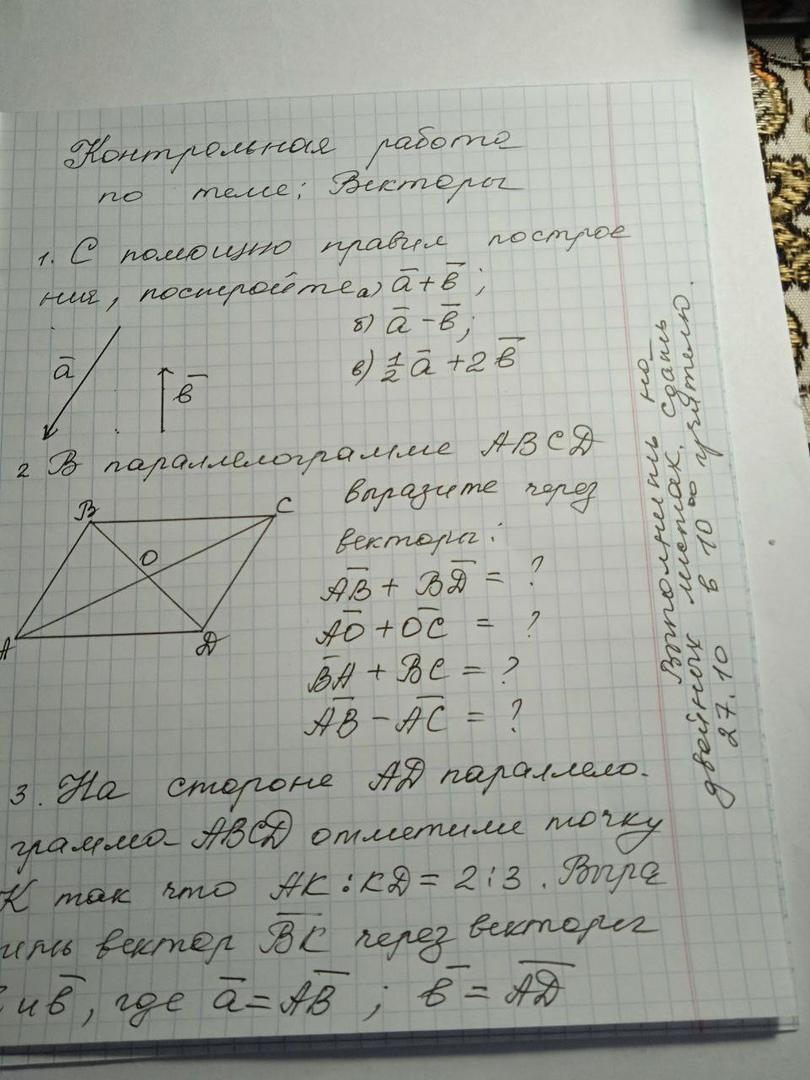 Контрольная работа
по теме: Векторы
1. С помощию правил построе
ния, постройте а) a̅ + b̅ ;
б) a̅ - b̅ ;
в) 1/2 a̅ + 2 b̅
a̅
b̅
2 В параллелограмме ABCD
выразите через
векторы:
AB + BD = ?
AO + OC = ?
BA + BC = ?
AB - AC = ?
B
C
O
A
D
3. На стороне AD параллело-
грамма ABCD отметили точку
K так что AK : KD = 2 : 3 . Выра
ить вектор BK через векторы
и b̅ , где a̅ = AB ; b̅ = AD
Выполнить на
двойных листах, сдать
27.10 в 10 00 учителю.